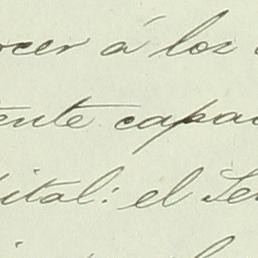 cer á los
ente capa
ital: el Se